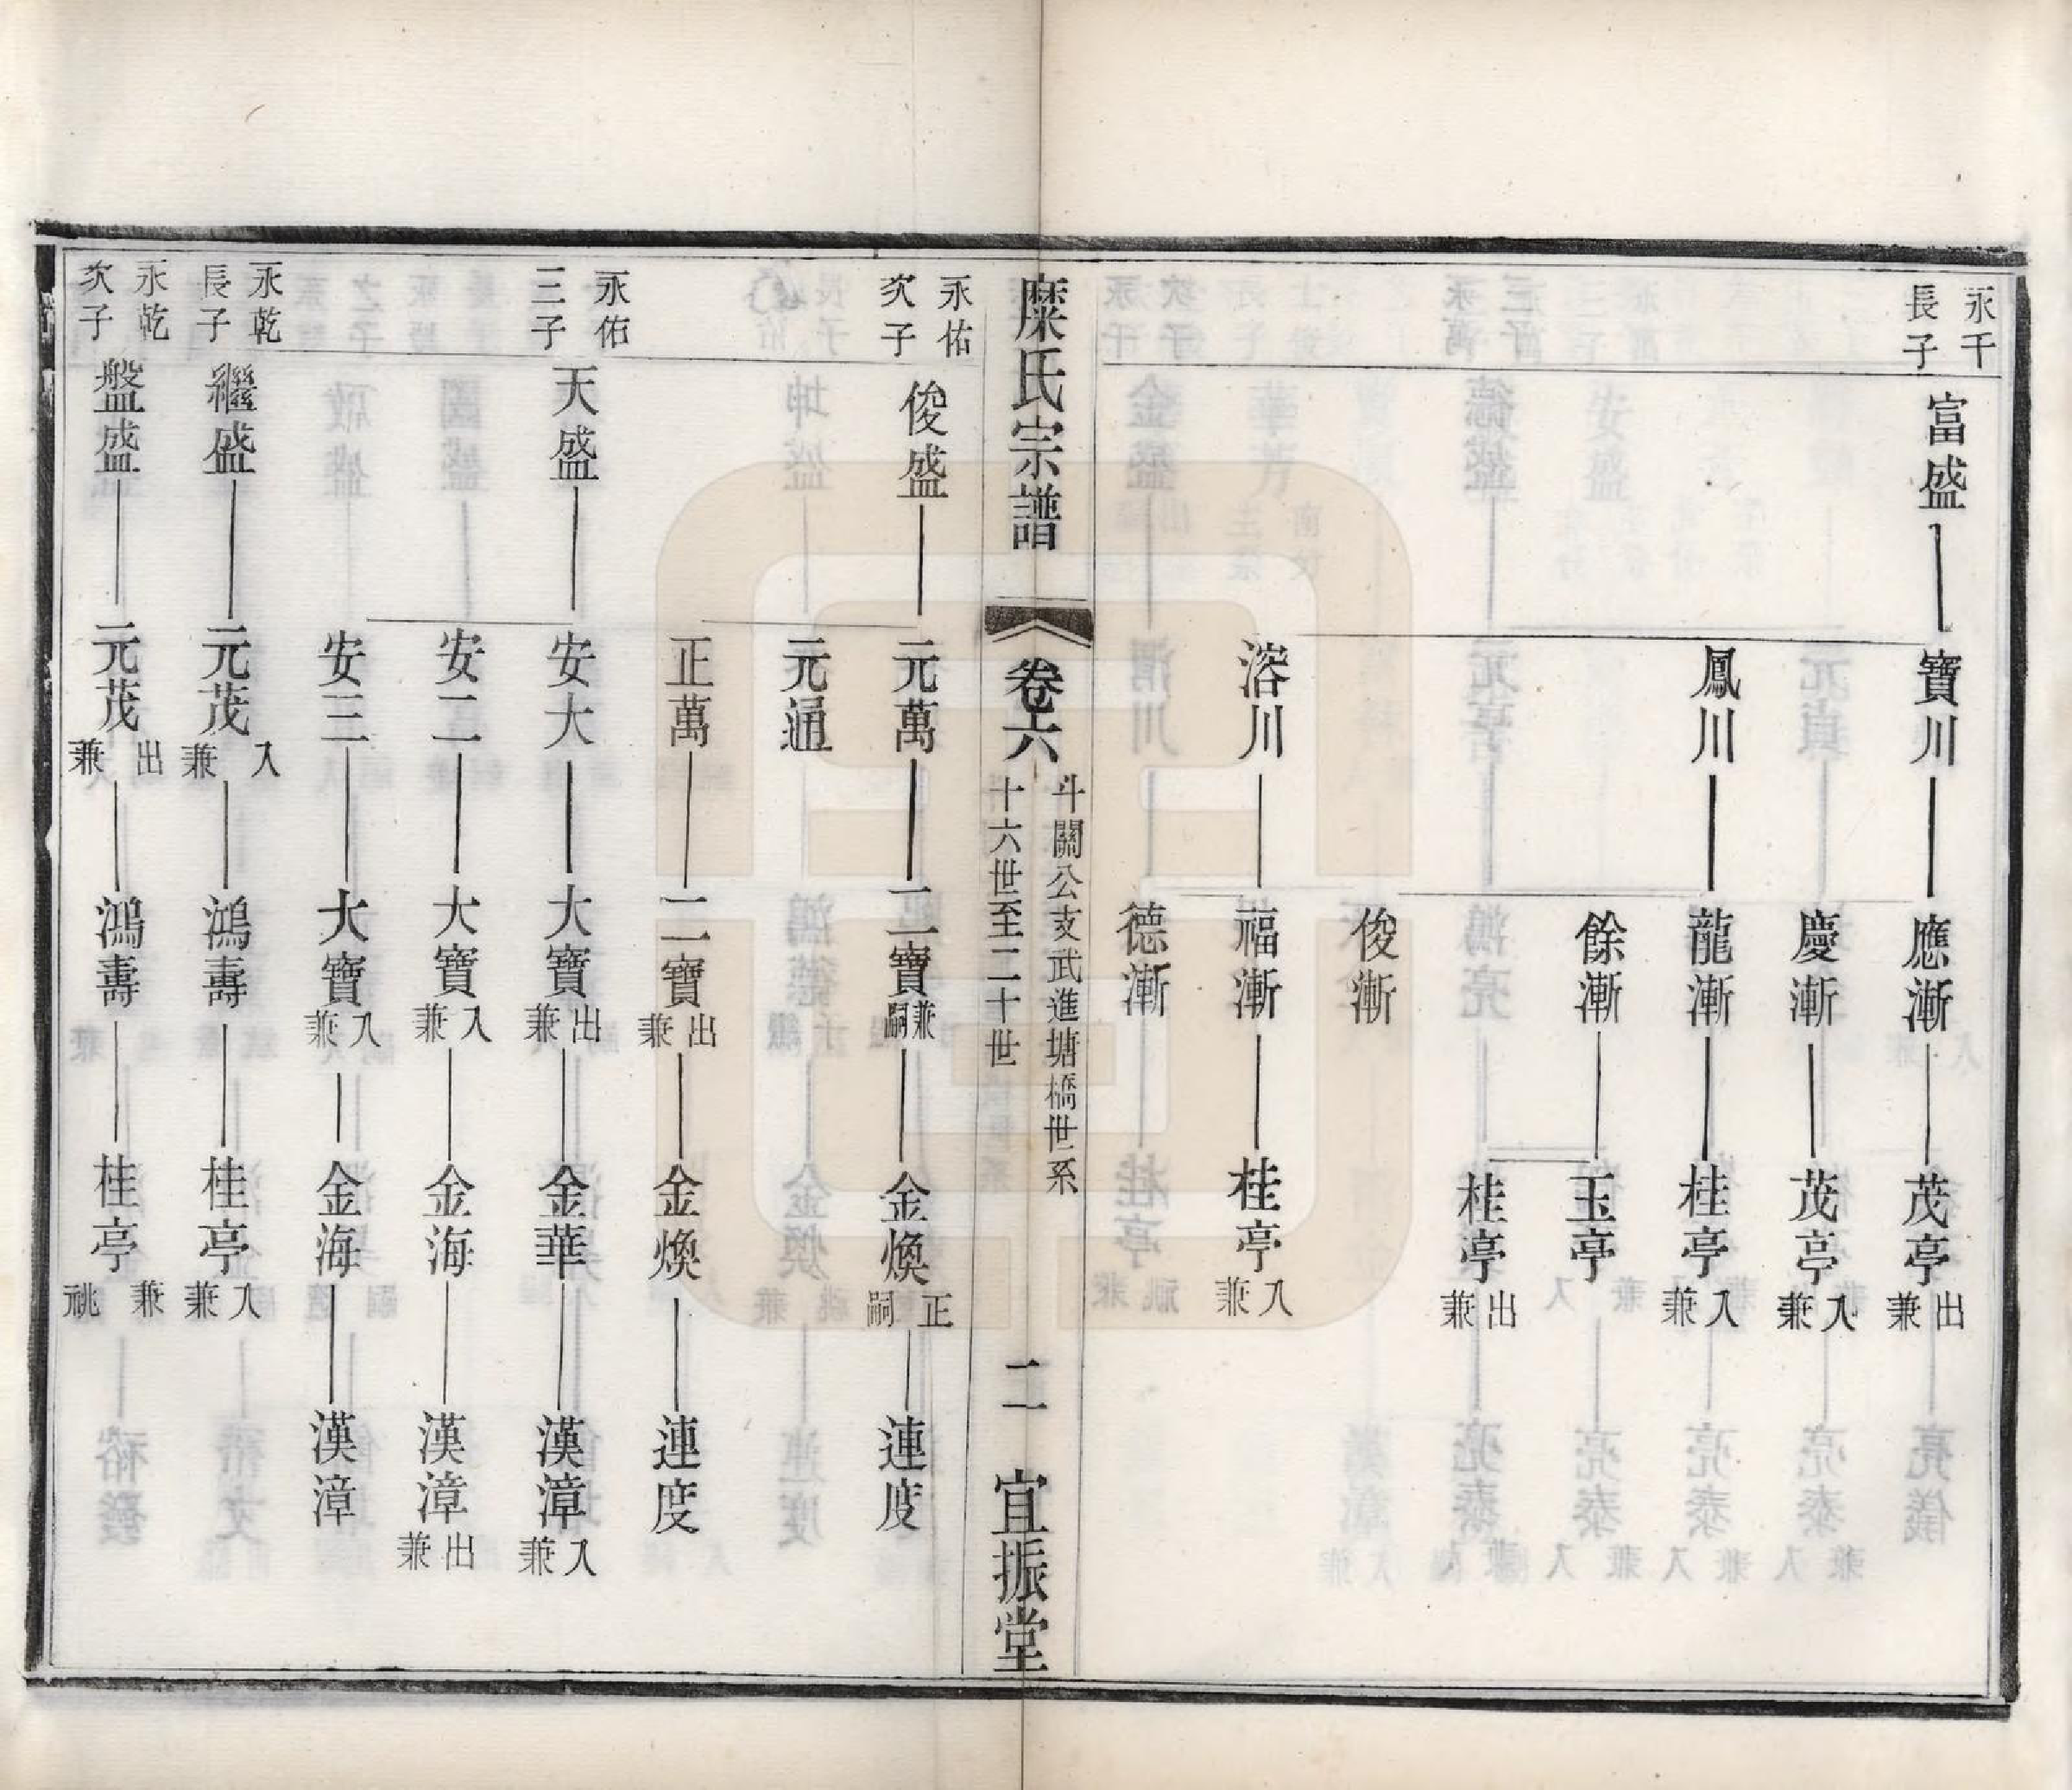 永千
長子
富盛
寶川
應漸
茂亭
出兼
慶漸
茂亭
入兼
鳳川
龍漸
桂亭
入兼
餘漸
玉亭
桂亭
出兼
俊漸
溶川
福漸
桂亭
入兼
德漸
糜氏宗譜
卷六
斗關公支武進塘橋世系
十六世至二十世
二
宜振堂
永佑
次子
俊盛
元萬
二寶
兼嗣
金煥
正嗣
連度
元通
正萬
二寶
出兼
金煥
連度
永佑
三子
天盛
安大
大寶
出兼
金華
漢漳
入兼
安二
大寶
入兼
金海
漢漳
出兼
安三
大寶
入兼
金海
漢漳
永乾
長子
繼盛
元茂
入兼
鴻壽
桂亭
入兼
永乾
次子
盤盛
元茂
出兼
鴻壽
桂亭
兼祧